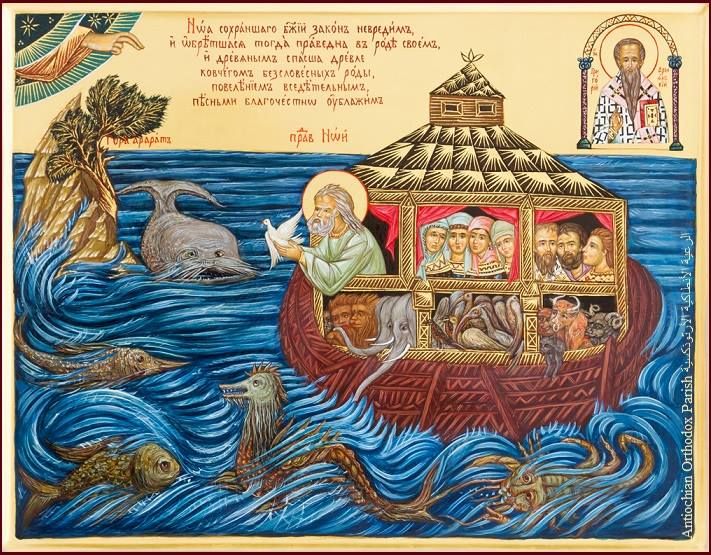 Нѡа сохраншаго Бж҃їй законъ невредимъ,
и҆ ѡ҆брѣтшася тогда праведна въ родѣ своемъ,
и҆ древанымъ спасша древле
ковчегомъ безсловесныхъ роды,
повелѣнїемъ вседѣтельнымъ,
пѣсньми благочестнѡ оублажимъ
гора араратъ
прав Нѡй
Antiochian Orthodox Parish الرعية الأنطاكية الأرثوذكسية